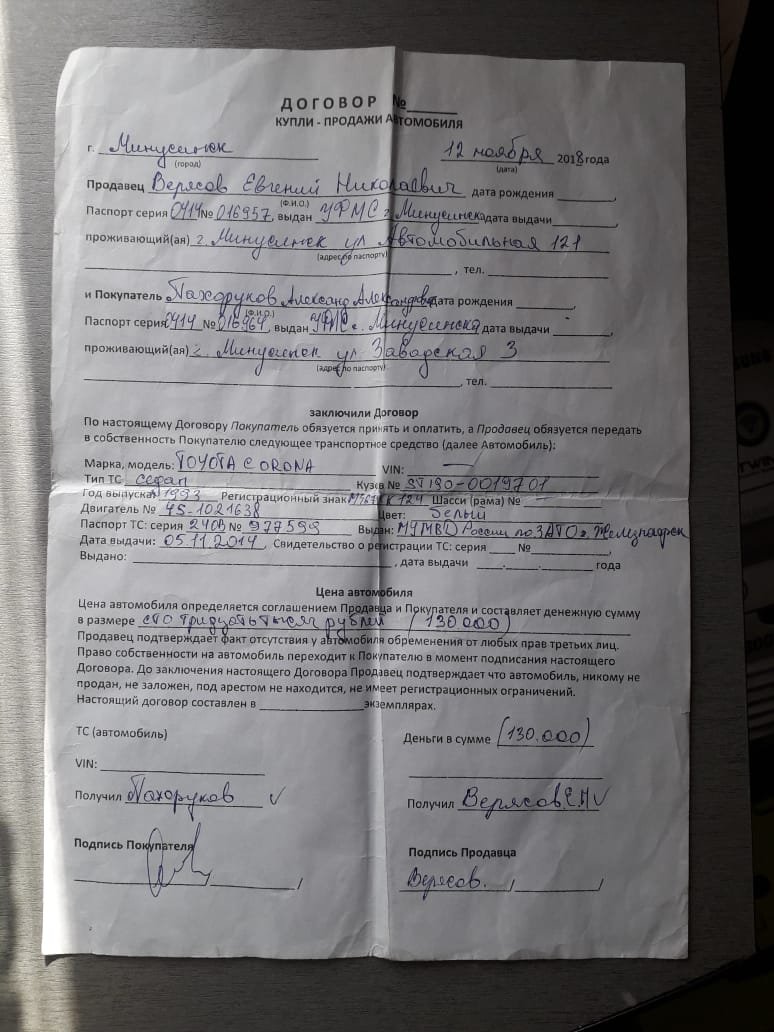 ДОГОВОР №______
КУПЛИ - ПРОДАЖИ АВТОМОБИЛЯ
г. Минусинск 12 ноября 2018 года
(город) (дата)
Продавец Верясов Евгений Николаевич дата рождения ________
(Ф.И.О.)
Паспорт серия 0414 № 016957, выдан УФМС г. Минусинска дата выдачи ______,
проживающий(ая) г. Минусинск ул Автомобильная 121
(адрес по паспорту)
______, тел. ______
и Покупатель Пахоруков Александр Александрович дата рождения ______,
(Ф.И.О.)
Паспорт серия 0414 № 016964, выдан УФМС г. Минусинска дата выдачи ______,
проживающий(ая) г. Минусинск ул Заводская 3
(адрес по паспорту)
______, тел. ______
заключили Договор
По настоящему Договору Покупатель обязуется принять и оплатить, а Продавец обязуется передать
в собственность Покупателю следующее транспортное средство (далее Автомобиль):
Марка, модель: TOYOTA CORONA VIN: —
Тип ТС седан Кузов № ST190-0019701
Год выпуска 1993 Регистрационный знак 124 Шасси (рама) № —
Двигатель № 4S-1021638 Цвет: белый
Паспорт ТС: серия 24ОВ № 977599 Выдан: МУМВД России по ЗАТО г. Железногорск
Дата выдачи: 05.11.2014, Свидетельство о регистрации ТС: серия ____ № ______,
Выдано: ______, дата выдачи ____.____.____ года
Цена автомобиля
Цена автомобиля определяется соглашением Продавца и Покупателя и составляет денежную сумму
в размере сто тридцать тысяч рублей (130.000)
Продавец подтверждает факт отсутствия у автомобиля обременения от любых прав третьих лиц.
Право собственности на автомобиль переходит к Покупателю в момент подписания настоящего
Договора. До заключения настоящего Договора Продавец подтверждает что автомобиль, никому не
продан, не заложен, под арестом не находится, не имеет регистрационных ограничений.
Настоящий договор составлен в ______ экземплярах.
ТС (автомобиль) Деньги в сумме (130.000)
VIN: ______
Получил Пахоруков V Получил Верясов Е.Н V
Подпись Покупателя Подпись Продавца
______/______/ Верясов. /______/